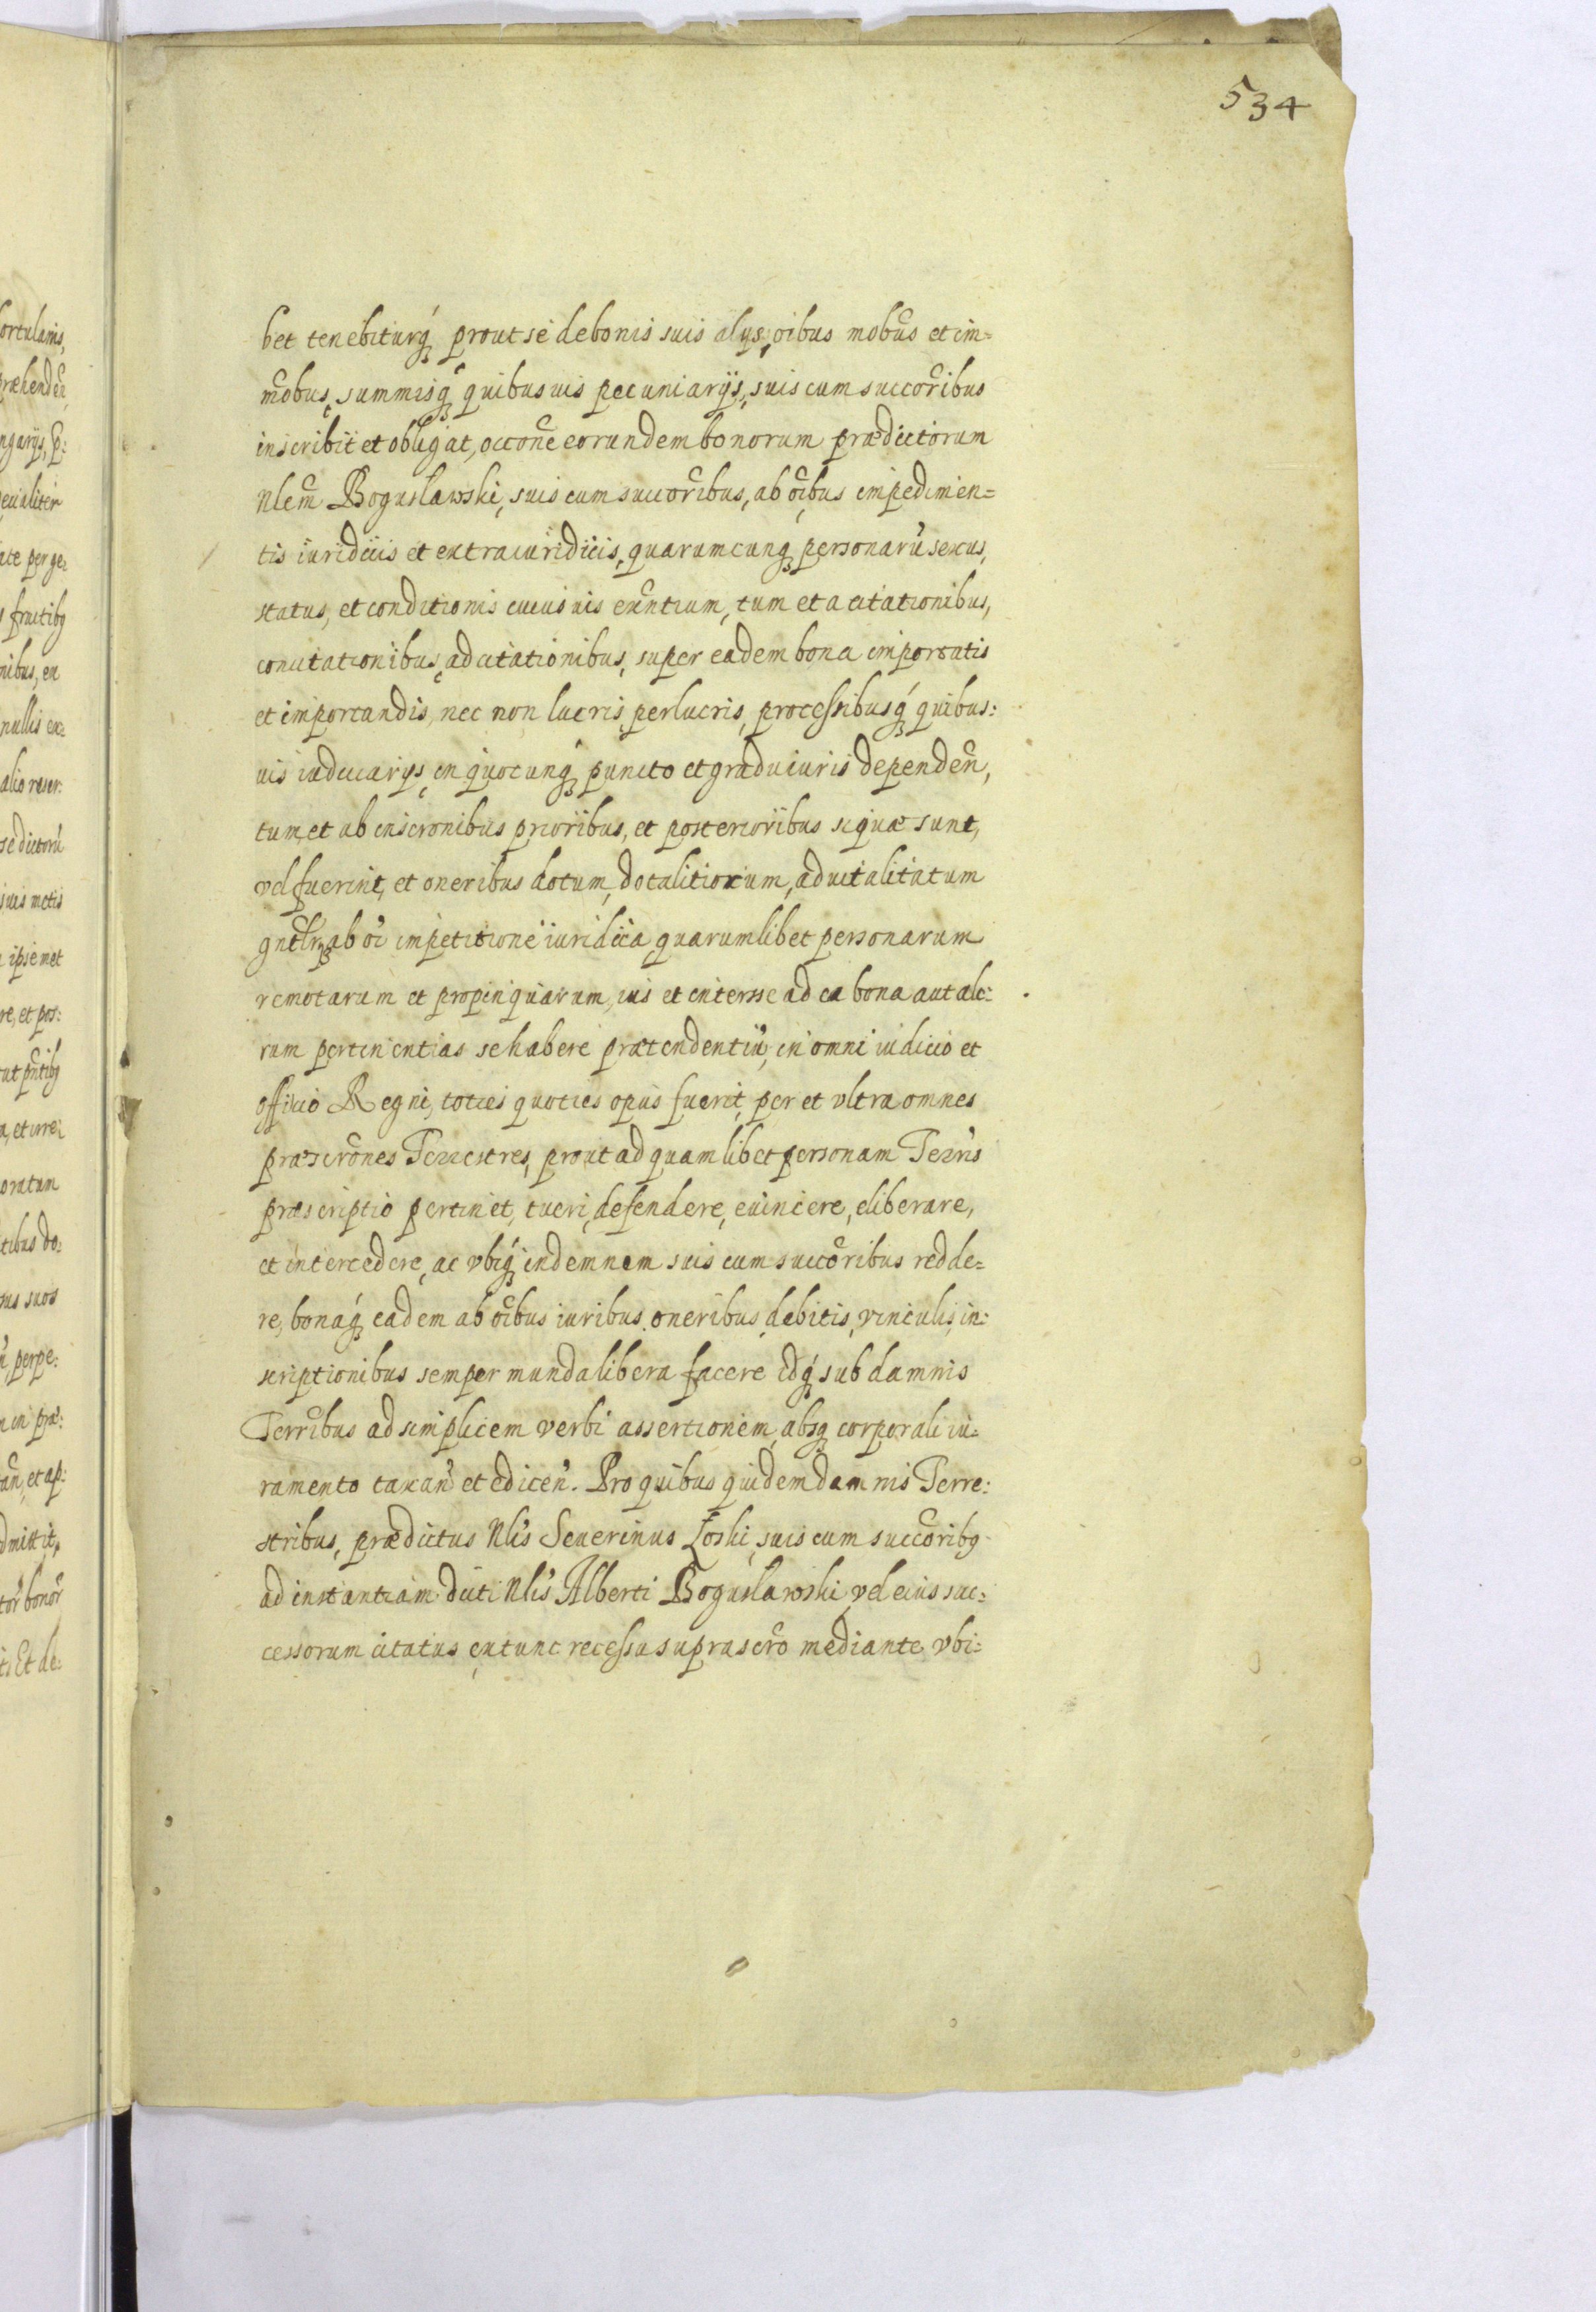 534
bet tenebiturq́ꝫ prout se de bonis suis alys, oibus mobũs et im=
mõbus, summisq́ꝫ quibusuis pecuniarijs, suis cum succoribus
inscribit et obligat, occõne eorundem bonorum prædictorum
Nlem̃ Boguslawski, suis cum succoribus, ab oibus impedimen=
tis iuridicis et extraiuridicis, quarumcunqꝫ personarũ sexus,
status, et conditionis cuiusuis exñtium, tum et a citationibus,
concitationibus, adcitationibus, super eadem bona importatis
et importandis, nec non lucris, perlucris, processibusq́ꝫ quibus:
uis iudiciarys, in quocunq́ꝫ puncto et gradu iuris dependeñ,
tum et ab inscronibus prioribus, et posterioribus si quæ sunt,
vel fuerint, et oneribus dotum, dotalitiorum, aduitalitatum
gnêlrꝫ ab oi impetitione iuridica quarumlibet personarum
remotarum et propinquarum, ius et interesse ad ea bona aut alc:
rum pertinentias se habere prætendentiũ, in omni iudicio et
officio Regni, toties quoties opus fuerit, per et vltra omnes
præscrõnes Terrestres, prout ad quamlibet personam Terrîs
præscriptio pertinet, tueri, defendere, euincere, eliberare,
et intercedere, ac vbiq́ꝫ indemnem suis cum succoribus redde=
re, bonaq́ꝫ eadem ab oibus iuribus, oneribus, debitis, vinculis, in:
scriptionibus semper munda libera facere idq́ꝫ sub damnis
Terribus ad simplicem verbi assertionem, absqꝫ corporali iu=
ramento taxañ et ediceñ. Pro quibus quidem damnis Terre:
stribus, prædictus Nlis Seuerinus Łoski, suis cum succoribꝫ
ad instantiam dicti Nlis Alberti Boguslawski, vel eius suc:
cessorum citatus extunc recessu suprascrõ mediante vbi=